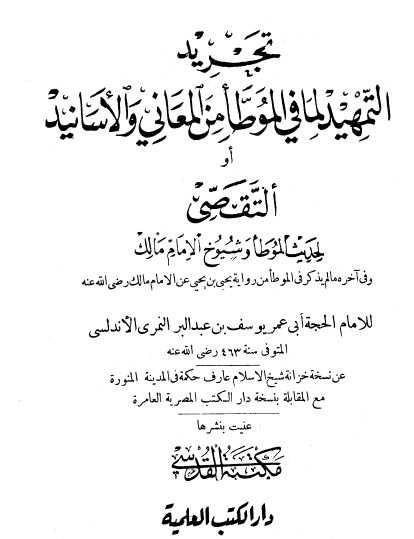 تجريد
التمهيد لما في الموطأ من المعاني والأسانيد
أو
التقصي
لحديث الموطأ وشيوخ الإمام مالك
وفى آخره مالم يذكر فى الموطأ من رواية يحيى بن يحيى عن الامام مالك رضى الله عنه
للامام الحجة أبى عمر يوسف بن عبد البر النمرى الأندلسى
المتوفى سنة ٤٦٣ رضى الله عنه
عن نسخة خزانة شيخ الاسلام عارف حكمة فى المدينة المنورة
مع المقابلة بنسخة دار الكتب المصرية العامرة
عنيت بنشرها
مكتبة القدسي
دار الكتب العلمية